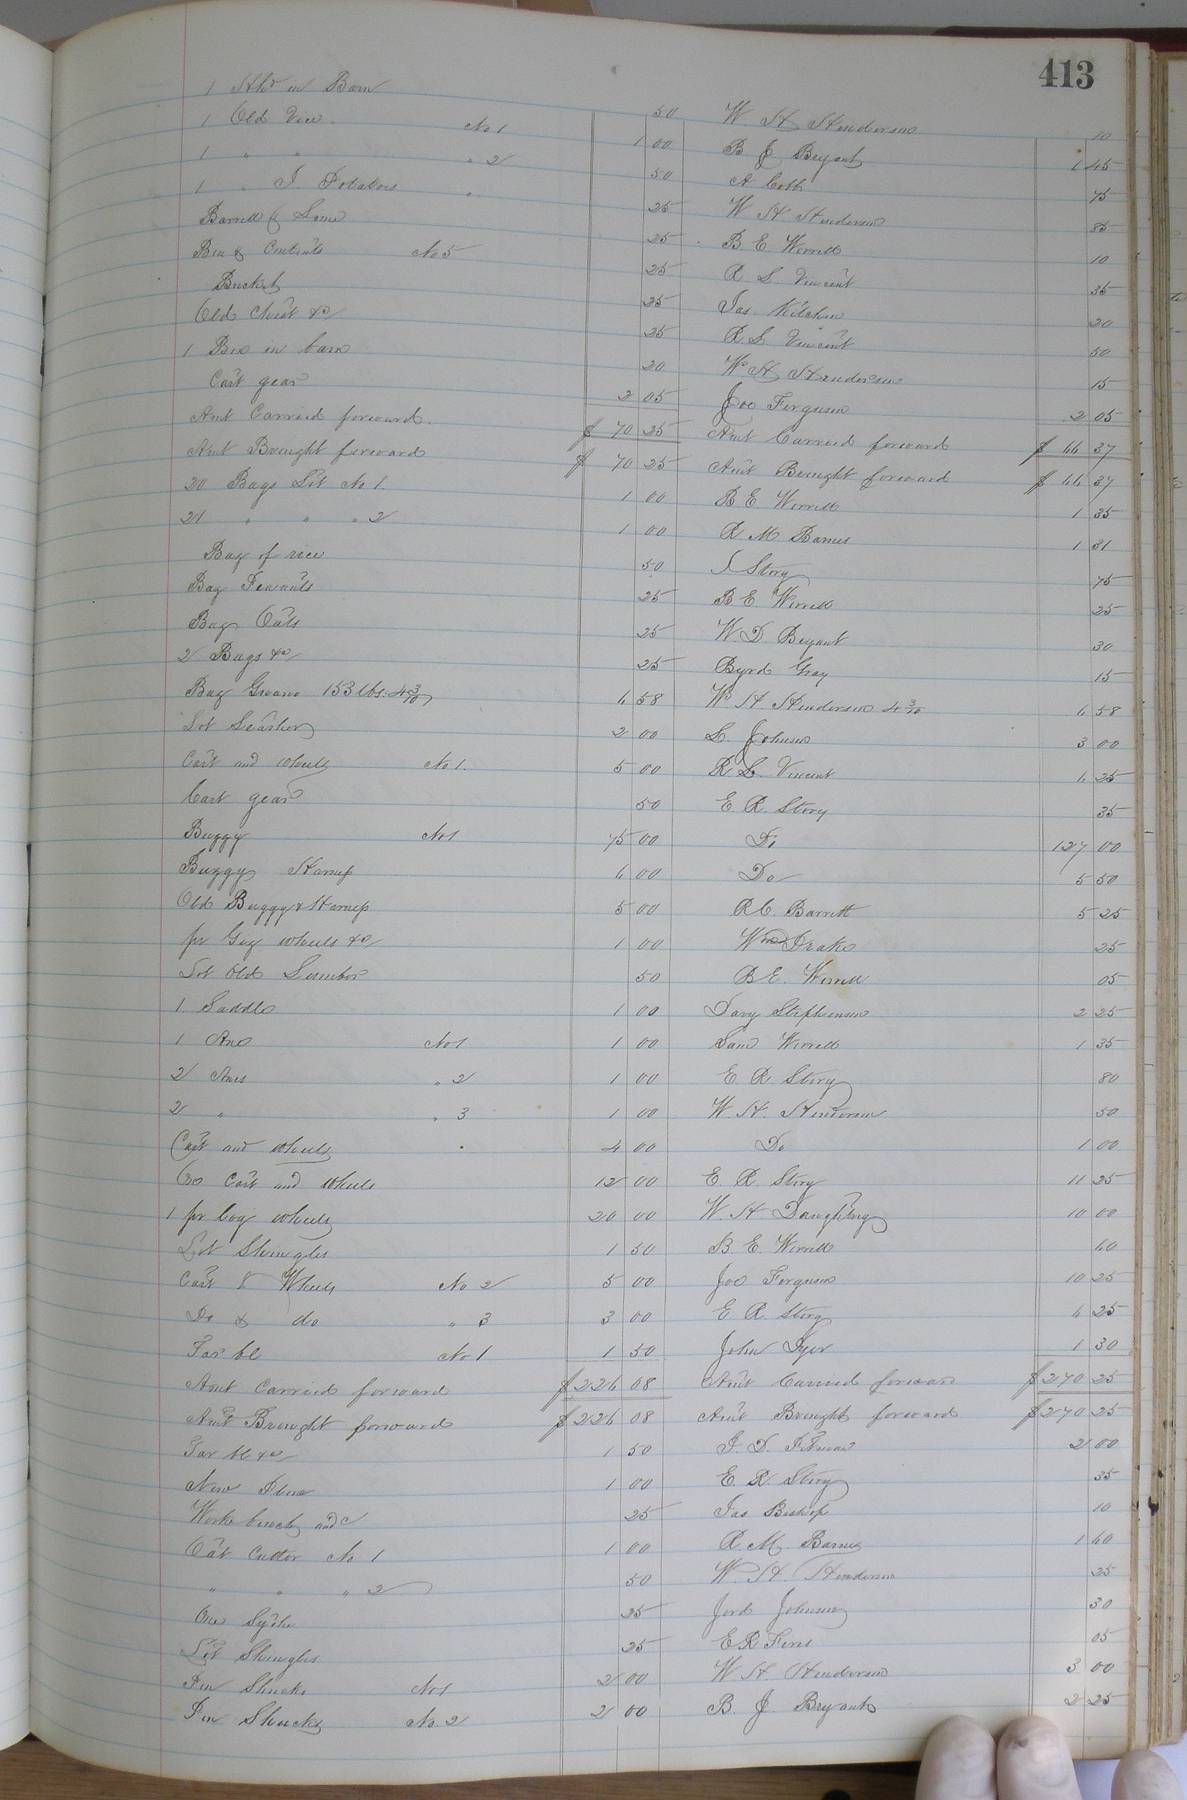 413
1 in Barn 50 W. H. Henderson 10
1 Old No 1 1 00 B J Bryant 1 45
1 " " " 2 50 A Cobb 75
1 " I. Potatoes " 25 W H Henderson 85
Barrell & 25 B E Worrell 10
Box & Contents No 5 25 R S Vincent 35
Bucket 25 Jas Kitchen 20
Old Chest &c 25 R. S Vincent 50
1 Box in barn 20 W H Henderson 15
Cart gear 2 05 Joe Ferguson 2 05
Amt Carried forward. $ 70 25 Amt Carried forward $ 44 37
Amt Brought forward $ 70 25 Amt Brought forward $ 44 37
20 Bags Lot No 1. 1 00 B E Worrell 1 35
21 " " " 2 1 00 R M Barnes 1 31
Bag of rice 50 Story 75
Bag 25 B E Worrell 25
Bag Oats 25 W D Bryant 30
2 Bags &c 25 Byrd Gray 15
Bag Guano 153 lbs. 4 3/10 6 58 W H. Henderson 4 3/10 6 58
Lot Leather 2 00 S. Johnson 3 00
Cart and wheels No 1. 5 00 R S. Vincent 6 25
Cart gear 50 E. R. Story 35
Buggy No 1 75 00 Do 127 00
Buggy Harness 6 00 Do 5 50
Old Buggy & Harness 5 00 R C. Barrett 5 25
pr Gig wheels &c 1 00 Wm Drake 25
Lot Old Lumber 50 B E. Worrell 05
1 Saddle 1 00 Davy Stephenson 2 25
1 Axe No 1 1 00 Sam Worrell 1 35
2 Axes " 2 1 00 E R. Story 80
2 " " 3 1 00 W. H. Henderson 50
Cart and wheels 4 00 Do 1 00
Ox Cart and wheels 12 00 E R. Story 11 25
1 pr log wheels 20 00 W. H Daughtrey 10 00
Lot Shingles 1 50 B. E. Worrell 60
Cart & Wheels No 2 5 00 Joe Ferguson 10 25
Do & do " 3 3 00 E R. Story 6 25
Tar bl No 1 1 50 John 1 30
Amt Carried forward $ 226 08 Amt Carried forward $ 270 25
Amt Brought forward $ 226 08 Amt Brought forward $ 270 25
Tar bl &c 1 50 J. D. 2 00
New 1 00 E R Story 35
Work bench and c 25 Jas Bishop 10
Oat Cutter No 1 1 00 R. M. Barnes 1 60
" " " 2 50 W. H. Henderson 25
One Sythe 25 Johnson 30
Lot Shingles 25 E R 05
Pen Shucks No 1 2 00 W H. Henderson 3 00
Pen Shucks No. 2 2 00 B. J. Bryant 2 25